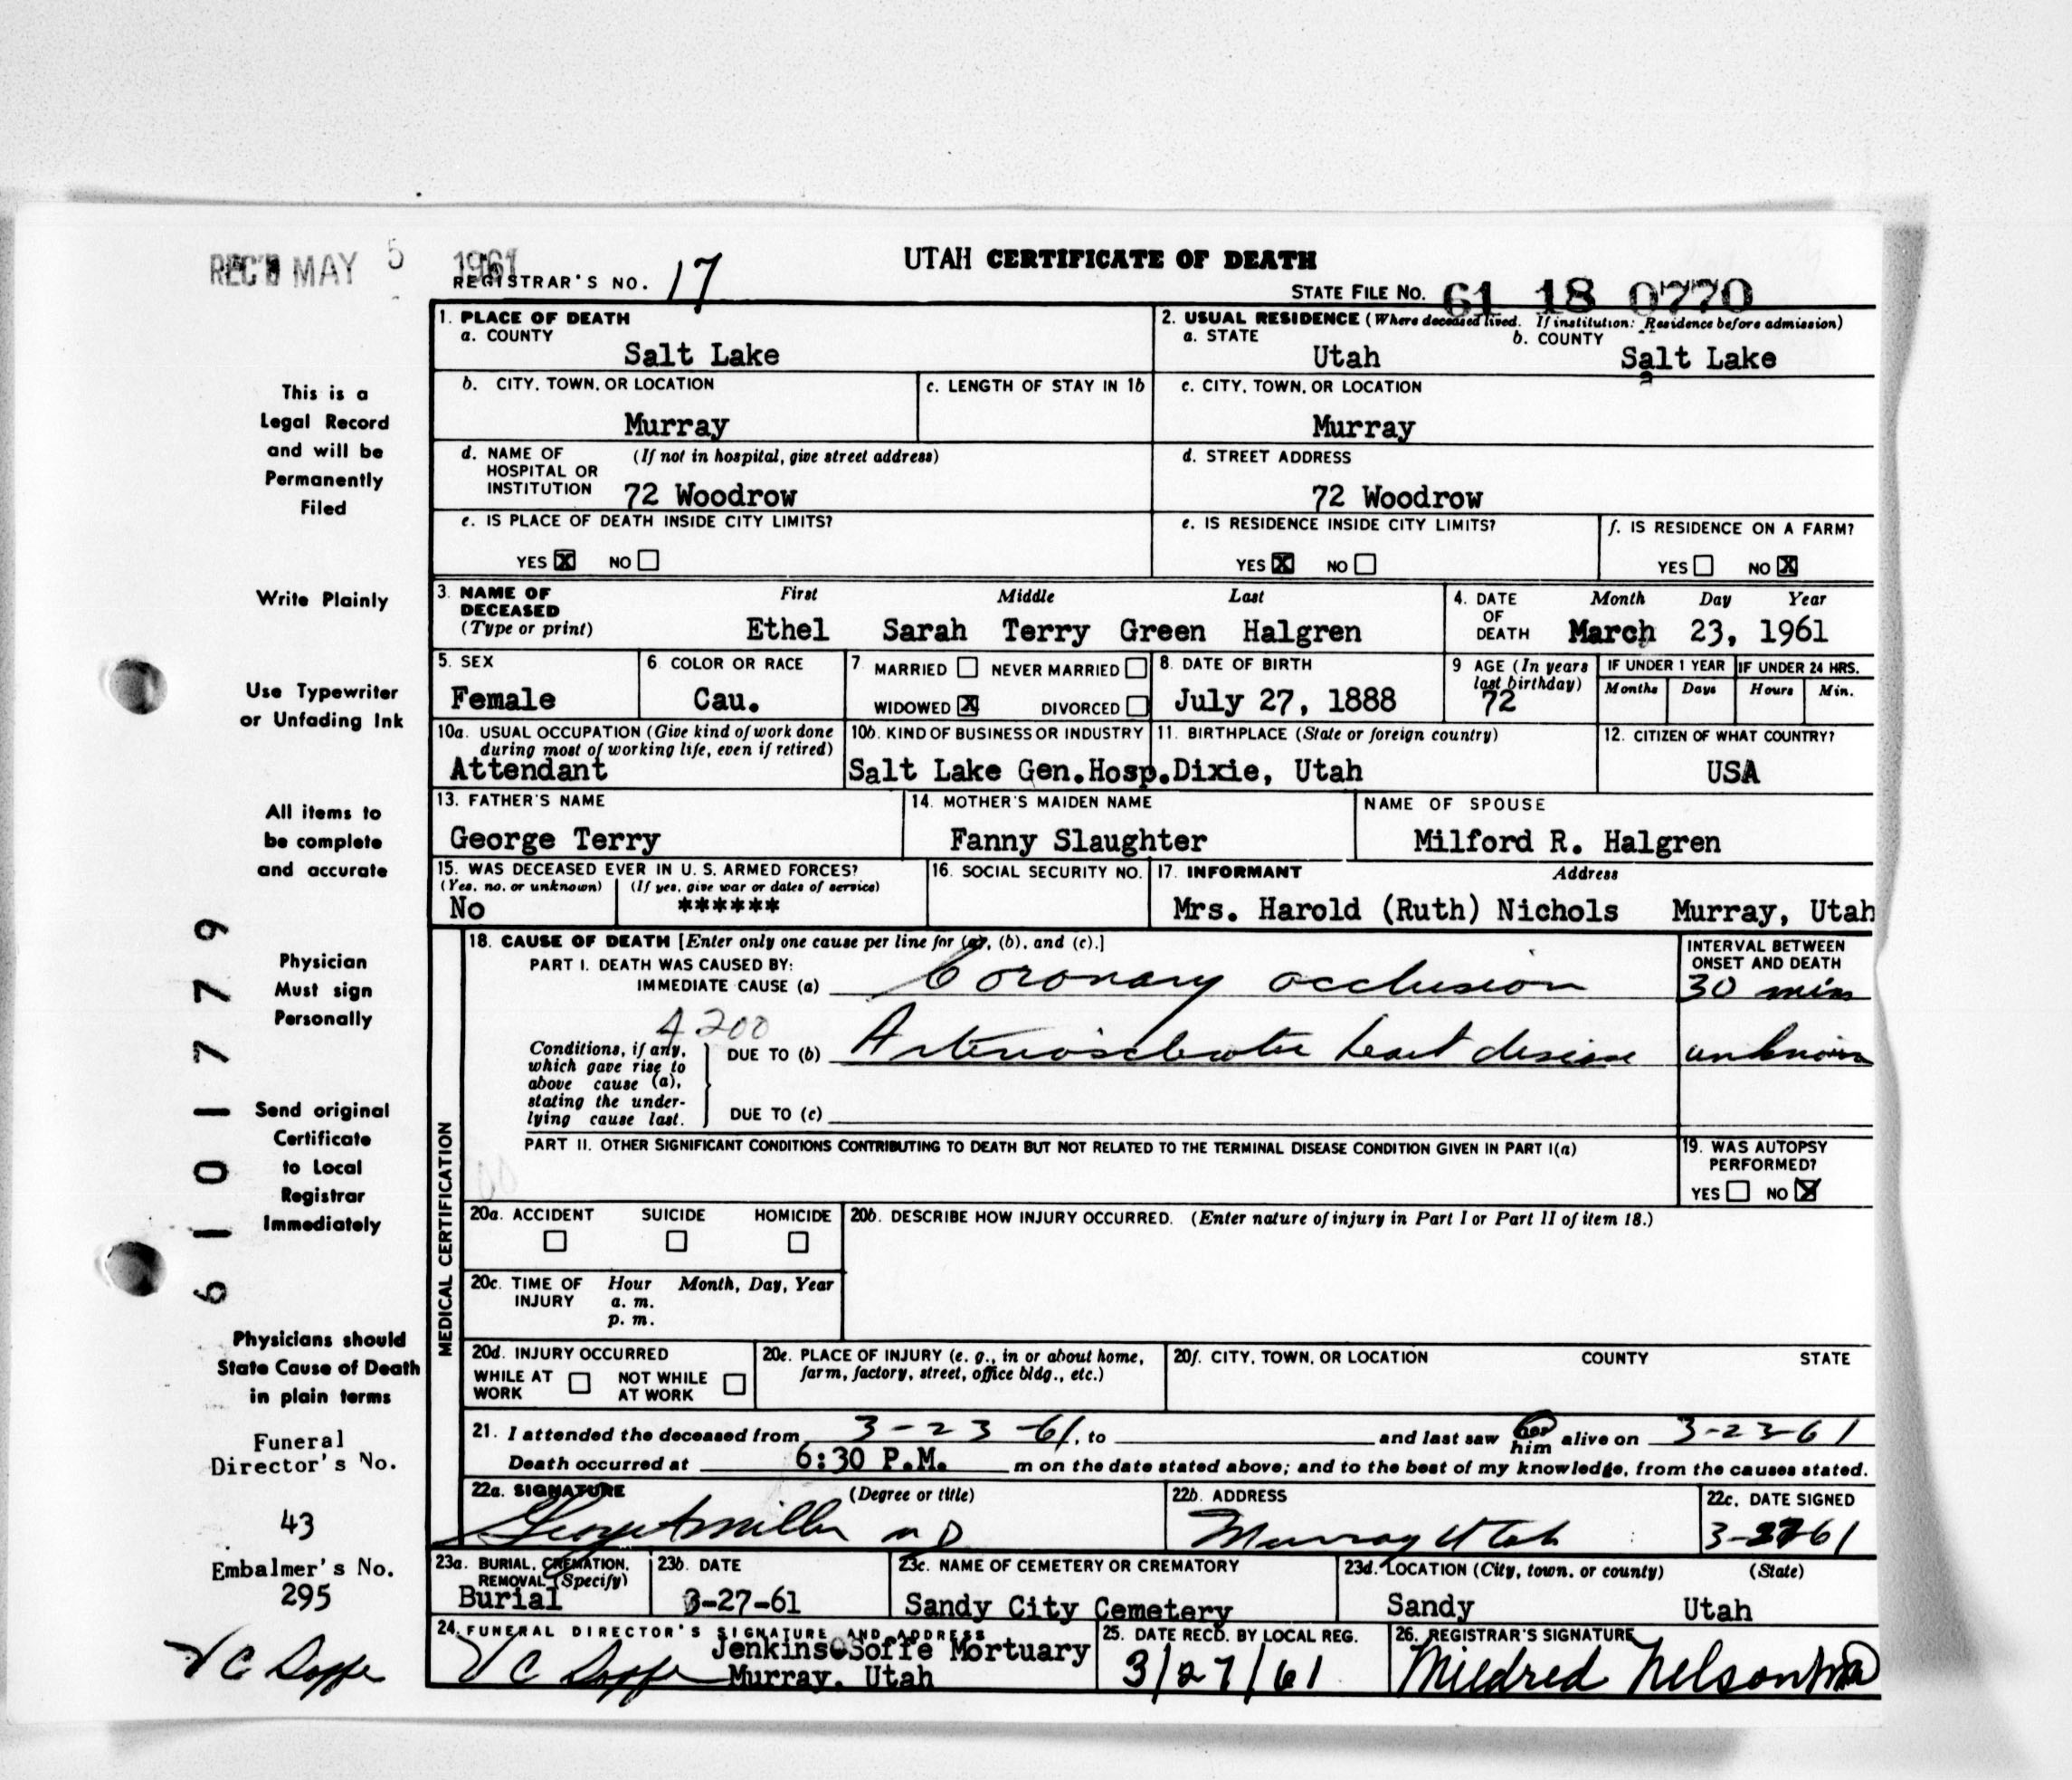 REC'D MAY 5 1961
UTAH CERTIFICATE OF DEATH
REGISTRAR'S NO. 17
STATE FILE NO. 61 18 0770
1. PLACE OF DEATH
a. COUNTY
Salt Lake
2. USUAL RESIDENCE (Where deceased lived. If institution: Residence before admission)
a. STATE b. COUNTY
Utah Salt Lake
b. CITY, TOWN, OR LOCATION
Murray
c. LENGTH OF STAY IN 1b
c. CITY, TOWN, OR LOCATION
Murray
d. NAME OF (If not in hospital, give street address)
HOSPITAL OR
INSTITUTION 72 Woodrow
d. STREET ADDRESS
72 Woodrow
e. IS PLACE OF DEATH INSIDE CITY LIMITS?
YES X NO
e. IS RESIDENCE INSIDE CITY LIMITS?
YES X NO
f. IS RESIDENCE ON A FARM?
YES NO X
3. NAME OF DECEASED (Type or print)
First Middle Last
Ethel Sarah Terry Green Halgren
4. DATE OF DEATH
Month Day Year
March 23, 1961
5. SEX
Female
6. COLOR OR RACE
Cau.
7. MARRIED NEVER MARRIED
WIDOWED X DIVORCED
8. DATE OF BIRTH
July 27, 1888
9 AGE (In years last birthday)
72
IF UNDER 1 YEAR
Months Days
IF UNDER 24 HRS.
Hours Min.
10a. USUAL OCCUPATION (Give kind of work done
during most of working life, even if retired)
Attendant
10b. KIND OF BUSINESS OR INDUSTRY
Salt Lake Gen.Hosp.
11. BIRTHPLACE (State or foreign country)
Dixie, Utah
12. CITIZEN OF WHAT COUNTRY?
USA
13. FATHER'S NAME
George Terry
14. MOTHER'S MAIDEN NAME
Fanny Slaughter
NAME OF SPOUSE
Milford R. Halgren
15. WAS DECEASED EVER IN U. S. ARMED FORCES?
(Yes, no, or unknown) (If yes, give war or dates of service)
No ******
16. SOCIAL SECURITY NO.
17. INFORMANT Address
Mrs. Harold (Ruth) Nichols Murray, Utah
MEDICAL CERTIFICATION
18. CAUSE OF DEATH [Enter only one cause per line for (a), (b), and (c).]
PART I. DEATH WAS CAUSED BY:
IMMEDIATE CAUSE (a) Coronary occlusion
INTERVAL BETWEEN
ONSET AND DEATH
30 min
4200
Conditions, if any,
which gave rise to
above cause (a),
stating the under-
lying cause last.
DUE TO (b) Arteriosclerotic heart disease unknown
DUE TO (c)
PART II. OTHER SIGNIFICANT CONDITIONS CONTRIBUTING TO DEATH BUT NOT RELATED TO THE TERMINAL DISEASE CONDITION GIVEN IN PART I(a)
19. WAS AUTOPSY
PERFORMED?
YES NO X
20a. ACCIDENT SUICIDE HOMICIDE
20b. DESCRIBE HOW INJURY OCCURRED. (Enter nature of injury in Part I or Part II of item 18.)
20c. TIME OF INJURY
Hour Month, Day, Year
a. m.
p. m.
20d. INJURY OCCURRED
WHILE AT WORK NOT WHILE AT WORK
20e. PLACE OF INJURY (e. g., in or about home,
farm, factory, street, office bldg., etc.)
20f. CITY, TOWN, OR LOCATION COUNTY STATE
21. I attended the deceased from 3-23-61, to and last saw her him alive on 3-23-61
Death occurred at 6:30 P.M. m on the date stated above; and to the best of my knowledge, from the causes stated.
22a. SIGNATURE (Degree or title)
22b. ADDRESS
Murray Utah
22c. DATE SIGNED
23a. BURIAL, CREMATION,
REMOVAL (Specify)
Burial
23b. DATE
3-27-61
23c. NAME OF CEMETERY OR CREMATORY
Sandy City Cemetery
23d. LOCATION (City, town, or county) (State)
Sandy Utah
24. FUNERAL DIRECTOR'S SIGNATURE AND ADDRESS
Jenkins-Soffe Mortuary
Murray, Utah
25. DATE RECD. BY LOCAL REG.
3/27/61
26. REGISTRAR'S SIGNATURE
Mildred Nelson
This is a
Legal Record
and will be
Permanently
Filed
Write Plainly
Use Typewriter
or Unfading Ink
All items to
be complete
and accurate
Physician
Must sign
Personally
Send original
Certificate
to Local
Registrar
Immediately
Physicians should
State Cause of Death
in plain terms
Funeral
Director's No.
43
Embalmer's No.
295
V C Soffe
61017779